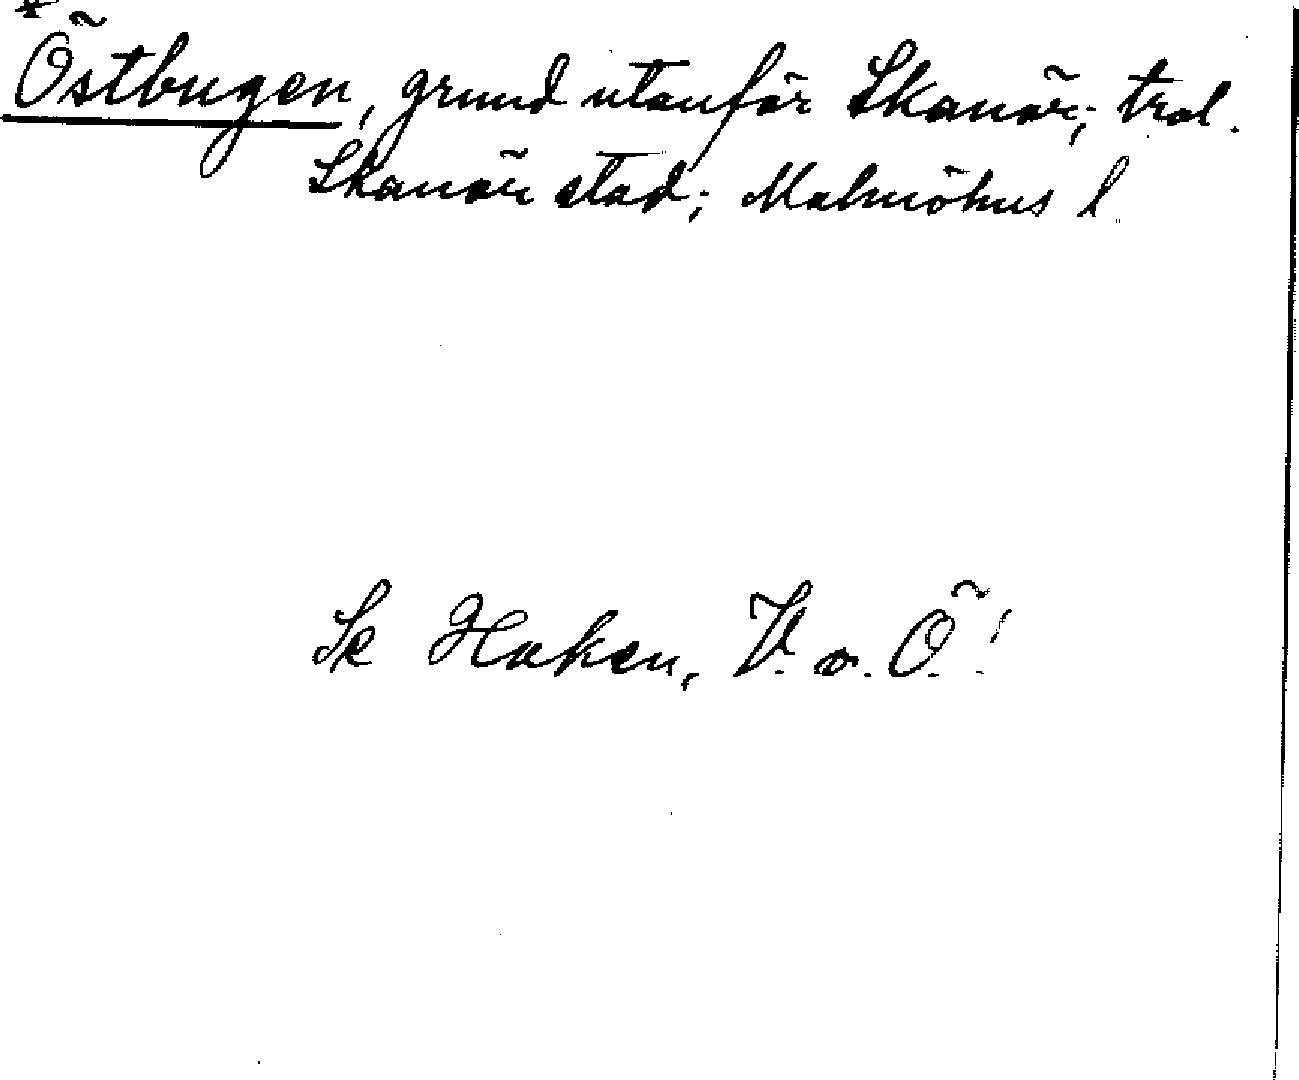 Östbugen, grund utanför Skanör; trol.
Skanör stad; Malmöhus l.
Se Haken, V. o. Ö.!